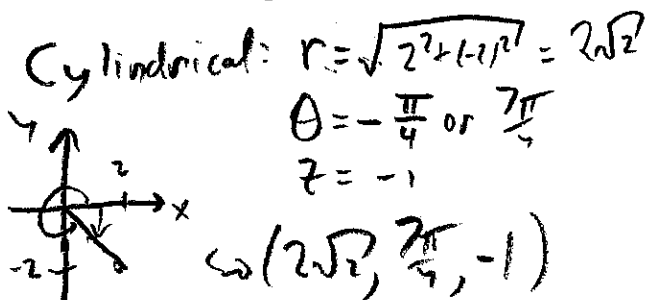 Cylindrical: r = √(2²+(-2)²) = 2√2
θ = -π/4 or 7π/4
z = -1
y
2
x
-2
so (2√2, 7π/4, -1)